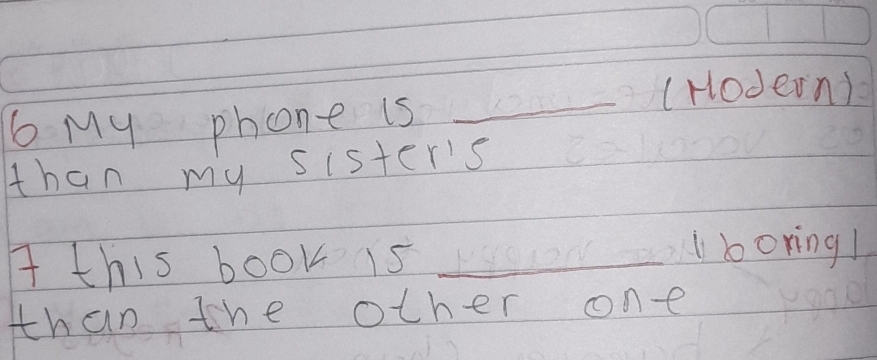 6 My phone is ______ (Modern)
than my sister's
7 this book is ______ (boring)
than the other one